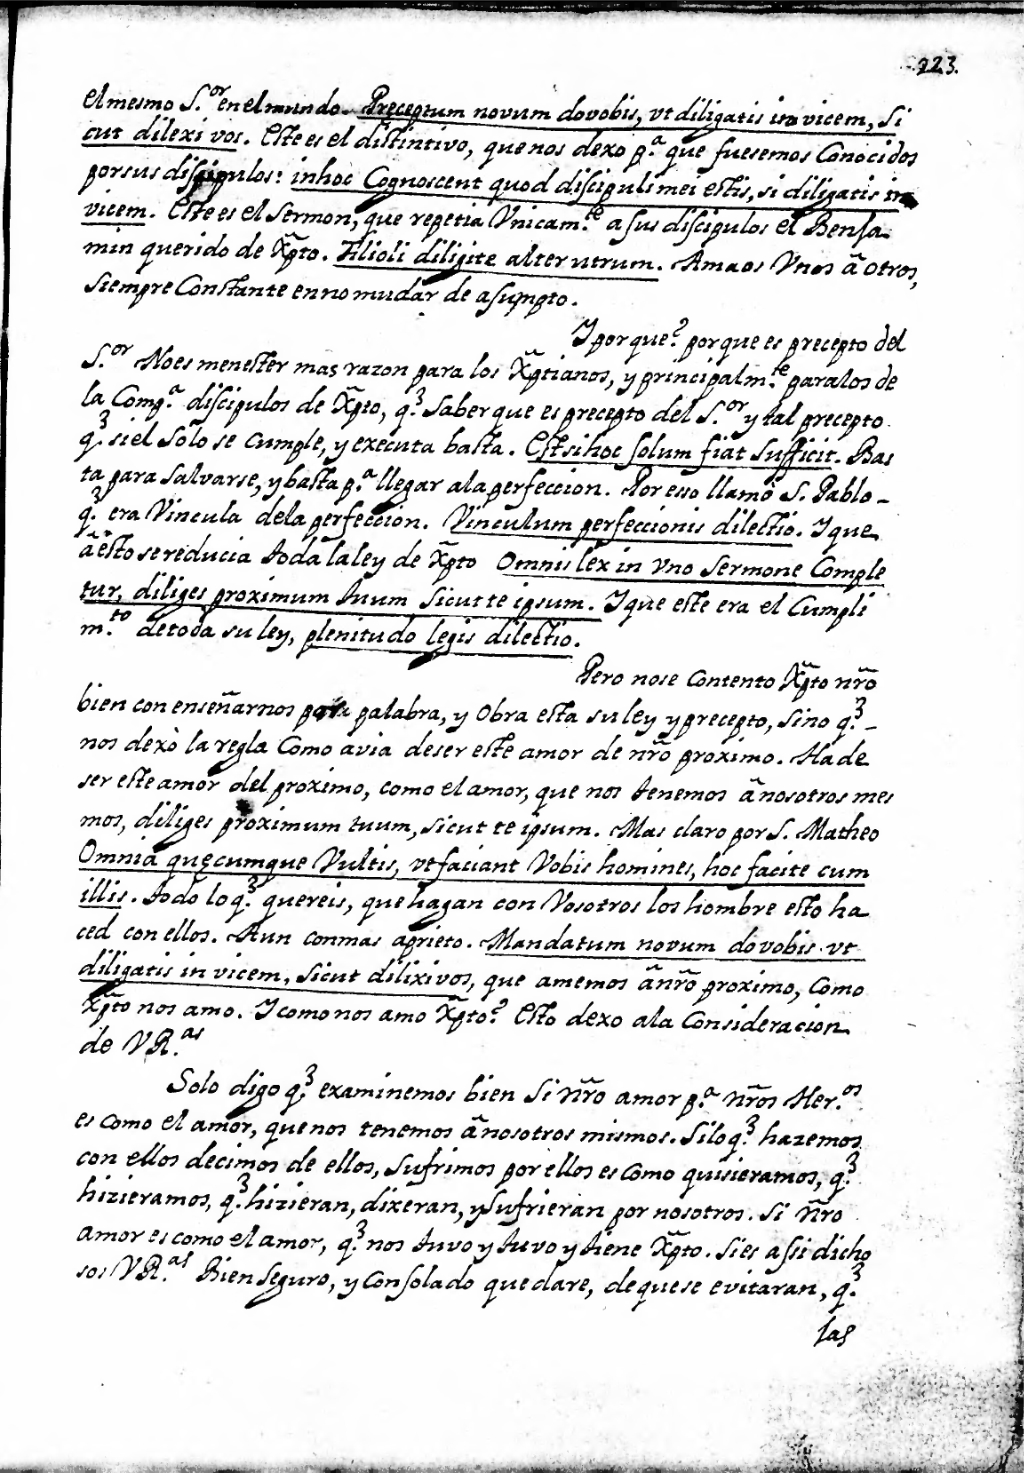 223.
el mesmo S.or en el mundo. Preceptum novum do vobis, vt diligatis in vicem, Si
cut dilexi vos. Este es el distintivo, que nos dexo p.a que fuesemos Conocidos
por sus discipulos: in hoc Cognoscent quod discipuli mei estis, si diligatis in
vicem. Este es el Sermon, que repetia Vnicam.te a sus discipulos el Benja
min querido de Xp̃to. Filioli diligite alterutrum. Amaos Vnos ã otros,
siempre Constante en no mudar de asumpto.
I por que? por que es precepto del
S.or No es menester mas razon para los Xp̃tianos, y principalm.te para los de
la Comp.a discipulos de Xp̃to, q.3 saber que es precepto del S.or y tal precepto
q.3 si el solo se cumple, y executa basta. Et si hoc solum fiat sufficit. Bas
ta para salvarse, y basta p.a llegar a la perfeccion. Por esso llamó S. Pablo
q.3 era Vincula de la perfeccion. Vinculum perfeccionis dilectio. I que
ã esto se reducia toda la ley de Xp̃to Omnis lex in vno sermone Comple
tur, diliges proximum tuum sicut te ipsum. I que este era el Cumpli
m.to de toda su ley, plenitudo legis dilectio.
Pero no se contento Xp̃to nr̃o
bien con enseñarnos por palabra, y Obra esta su ley y precepto, sino q.3
nos dexò la regla Como avia de ser este amor de nr̃o proximo. Ha de
ser este amor del proximo, como el amor, que nos tenemos ã nosotros mes
mos, diliges proximum tuum, sicut te ipsum. Mas claro por S. Matheo
Omnia quęcumque Vultis, vt faciant Vobis homines, hoc facite cum
illis. todo lo q.3 quereis, que hagan con Vosotros los hombre esto ha
ced con ellos. Aun con mas aprieto. Mandatum novum do vobis vt
diligatis in vicem, sicut dilixi vos, que amemos ã nr̃o proximo, Como
Xp̃to nos amo. I como nos amo Xp̃to? Esto dexo a la Consideracion
de VR.as
Solo digo q.3 examinemos bien si nr̃o amor p.a nr̃os Her.os
es como el amor, que nos tenemos ã nosotros mismos. Si lo q.3 hazemos
con ellos decimos de ellos, sufrimos por ellos es como quisieramos, q.3
hizieramos, q.3 hizieran, dixeran, y sufrieran por nosotros. Si nr̃o
amor es como el amor, q.3 nos tuvo y tuvo y tiene Xp̃to. Si es assi dicho
sos VR.as Bien seguro, y Consolado quedare, de que se evitaran, q.3
las